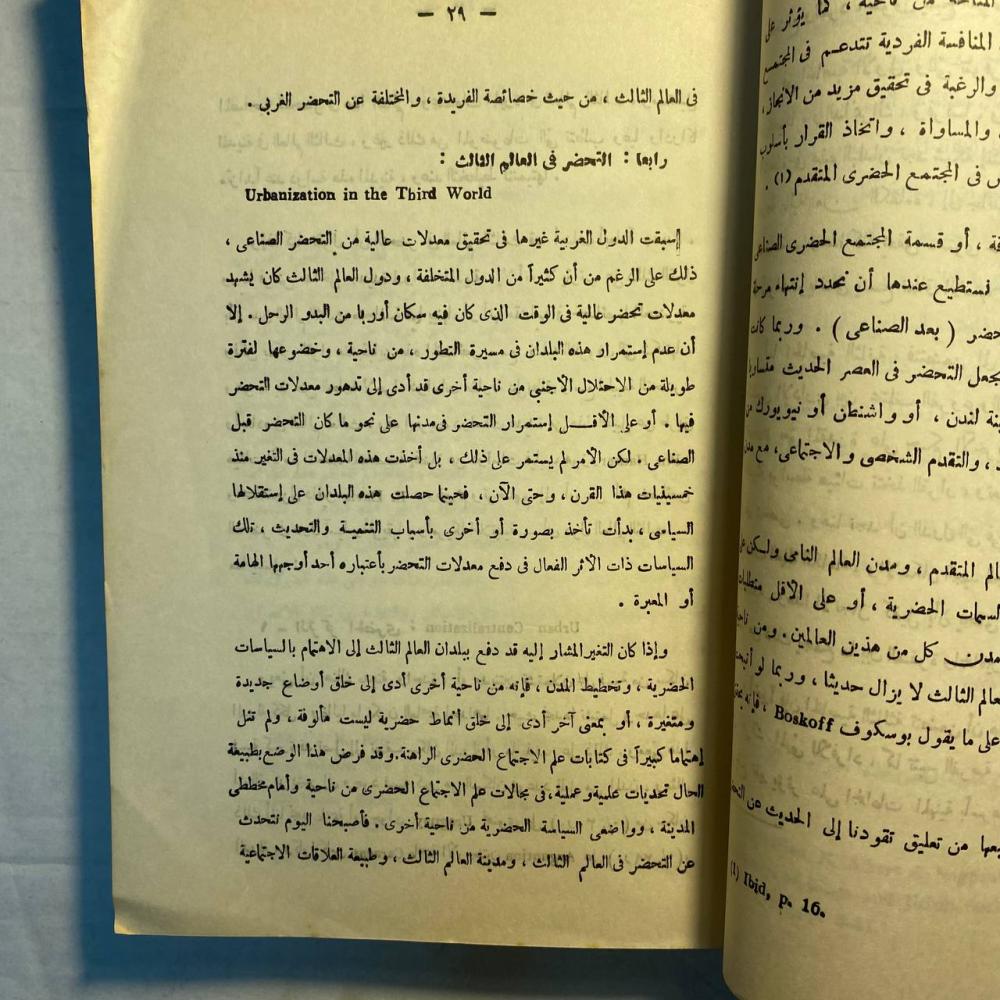 — ٢٩ —
فى العالم الثالث ، من حيث خصائصة الفريدة ، والمختلفة عن التحضر الغربي .
رابعا : التحضر فى العالم الثالث :
Urbanization in the Third World
إسبقت الدول الغربية غيرها فى تحقيق معدلات عالية من التحضر الصناعى ،
ذلك على الرغم من أن كثيراً من الدول المتخلفة ، ودول العالم الثالث كان يشهد
معدلات تحضر عالية فى الوقت الذى كان فيه سكان أوربا من البدو الرحل . إلا
أن عدم إستمرار هذه البلدان فى مسيرة التطور ، من ناحية ، وخضوعها لفترة
طويلة من الاحتلال الاجنبي من ناحية أخرى قد أدى إلى تدهور معدلات التحضر
فيها . أو على الأقــــل إستمرار التحضر فى مدنها على نحو ما كان التحضر قبل
الصناعى . لكن الأمر لم يستمر على ذلك ، بل أخذت هذه المعدلات فى التغير منذ
خمسينيات هذا القرن ، وحتى الآن ، فحينما حصلت هذه البلدان على إستقلالها
السياسى ، بدأت تأخذ بصورة أو أخرى بأسياب التنمية والتحديث ، تلك
السياسات ذات الأثر الفعال فى دفع معدلات التحضر بأعتباره أحد أوجهها الهامة
أو المعبرة .
وإذا كان التغير المشار إليه قد دفع ببلدان العالم الثالث إلى الاهتمام بالسياسات
الحضرية ، وتخطيط المدن ، فإنه من ناحية أخرى أدى إلى خلق أوضاع جديدة
ومتغيرة ، أو بمعنى آخر أدى إلى خلق أنماط حضرية ليست مألوفة ، ولم تنل
إهتماما كبيراً فى كتابات علم الاجتماع الحضرى الراهنة. وقد فرض هذا الوضع بطبيعة
الحال تحديات علمية وعملية، فى مجالات علم الاجتماع الحضرى من ناحية وأمام مخططى
المدينة ، وواضعى السياسة الحضرية من ناحية أخرى . فأصبحنا اليوم نتحدث
عن التحضر فى العالم الثالث ، ومدينة العالم الثالث ، وطبيعة العلاقات الاجتماعية
من ناحية ، كما يؤثر على
المنافسة الفردية تتدعم فى المجتمع
والرغبة فى تحقيق مزيد من الانجاز،
والمساواة ، واتخاذ القرار بأسلوب
فى المجتمع الحضرى المتقدم (١) .
، أو قسمة المجتمع الحضرى الصناعى
نستطيع عندها أن نحدد إنتهاء مرحلة
( بعد الصناعى ) . وربما كانت
يجعل التحضر فى العصر الحديث
لندن ، أو واشنطن أو نيويورك من
، والتقدم الشخصى والاجتماعى، مع مدن
المتقدم ، ومدن العالم النامى ولكن
السمات الحضرية ، أو على الأقل متطلبات
مدن كل من هذين العالمين . ومن
العالم الثالث لا يزال حديثا ، وربما لو
على ما يقول بوسكوف Boskoff ، فإنه
من تعليق تقودنا إلى الحديث عن
(1) Ibid, p. 16.